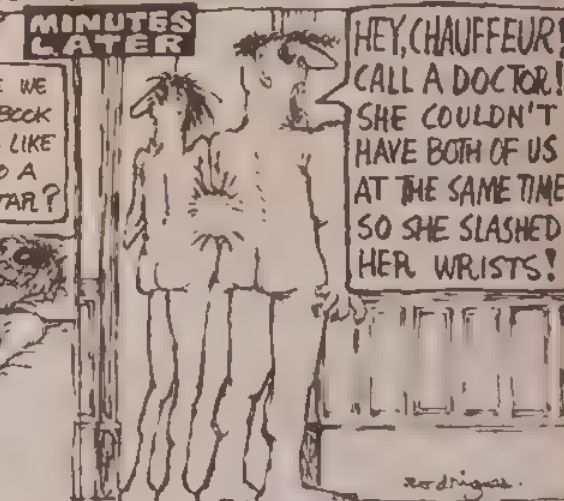 MINUTES
LATER
E WE
BOOK
LIKE
O A
TAR?
HEY, CHAUFFEUR!
CALL A DOCTOR!
SHE COULDN'T
HAVE BOTH OF US
AT THE SAME TIME
SO SHE SLASHED
HER WRISTS!
Rodrigues.